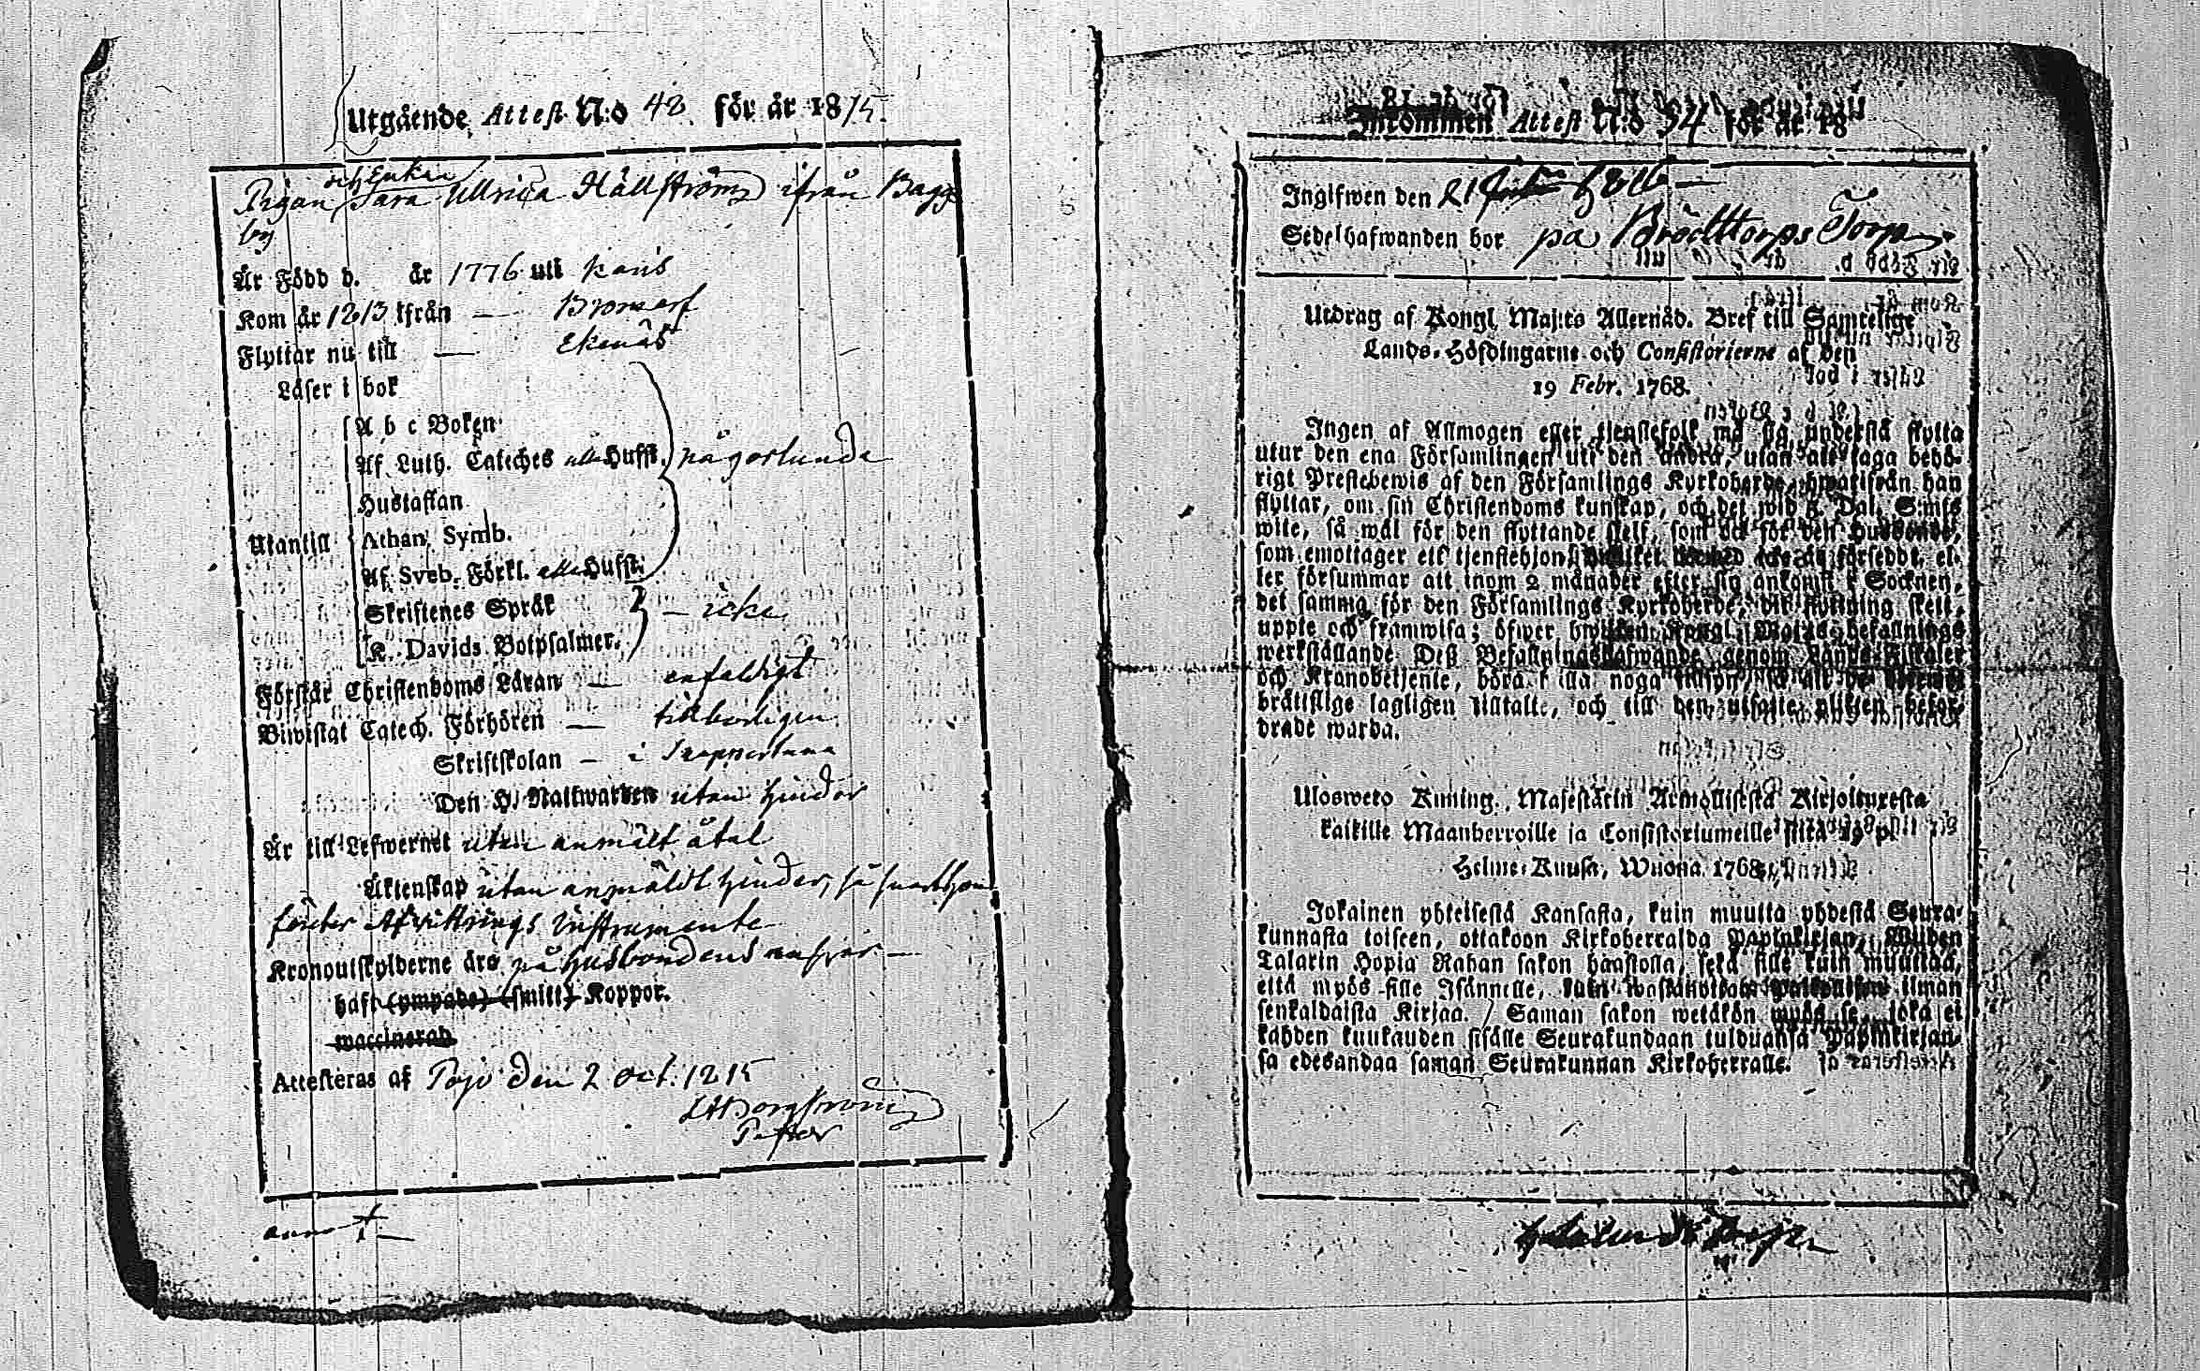 Utgående Attest N:o 42 för år 1815.
och Enkan
Pigan Sara Ullrica Hällström ifrån Bagge
by
Är Född d. år 1776 uti Karis
Kom år 1813 ifrån — Bromarf
Flyttar nu till — Ekenäs
Läser i bok
A b c Boken
Af Luth. Cateches Husst. någorlunda
Hustaflan
Utantill
Athan. Symb.
Af Sveb. Förkl. Husst.
Skriftenes Språk — icke
K. Davids Botpsalmer.
Förstår Christendoms Läran — enfaldigt
Biwistat Catech. Förhören — tidbörligen
Skriftskolan — i
Den H. Nattwarden utan hinder
Är till Lefwernet utan anmält åtal
Äktenskap utan anmäldt hinder, så snart hon
företer Afvittrings Instrumente
Kronoutskylderne äro på husbondens ansvar —
haft (ympade) (smitt) Koppor.
waccinerad
Attesteras af Pojo den 2 Oct. 1815
Borgström
Pastor
anno
Inkommen Attest N:o 34 för år 18
Ingifwen den 21 1816 —
Sedelhafwanden bor på Brödtorps Torp
Utdrag af Kongl. Maj:ts Allernåd. Bref till Samtelige
Lands-Höfdingarne och Consistorierne af den
19 Febr. 1768.
Ingen af Allmogen eller tjenstefolk må sig understå flytta
utur den ena Församlingen uti den andra, utan att taga behö-
rigt Prestebewis af den Församlings Kyrkoherde, hwarifrån han
flyttar, om sin Christendoms kunskap, och det wid 5 Dal. S:mts
wite, så wäl för den flyttande sielf, som ock för den Husbonde,
som emottager ett tjenstehjon, hwilket dermed icke är försedt, el-
ler försummar att inom 2 månader efter sin ankomst i Socknen,
det samma för den Församlings Kyrkoherde, dit flyttning skett,
uppte och framwisa; öfwer hwilken Kongl. Maj:ts befallnings
werkställande Deß Befallningshafwande, genom Lands-Fiskaler
och Kronobetjente, böra hålla noga tillsyn, så att de
brättslige lagligen tilltalte, och till den utsatte plikten befor-
drade warda.
Ulosweto Kuning. Majestätin Armollisesta Kirjoituxesta
kaikille Maanherroille ja Consistoriumeille siitä 19 p.
Helme-Kuusa, Wuona 1768.
Jokainen yhteisestä Kansasta, kuin muutta yhdestä Seura-
kunnasta toiseen, ottakoon Kirkoherralda Papinkirjan, Wiiden
Talarin Hopia Rahan sakon haastolla, sekä sille kuin muuttaa,
että myös sille Isännälle, kuin wastanottaa palkollisen ilman
senkaldaista Kirjaa. Saman sakon wetäkön myös se, joka ei
kahden kuukauden sisälle Seurakundaan tulduansa Papinkirjan-
sa edesandaa saman Seurakunnan Kirkoherralle.